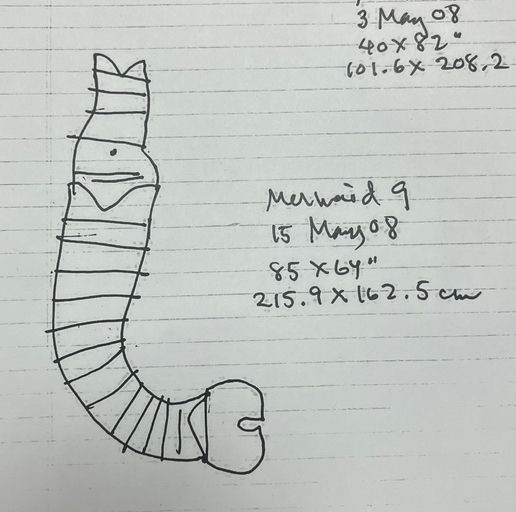 3 May 08
40 X 82"
101.6 X 208.2
Mermaid 9
15 May 08
85 X 64"
215.9 X 162.5 cm